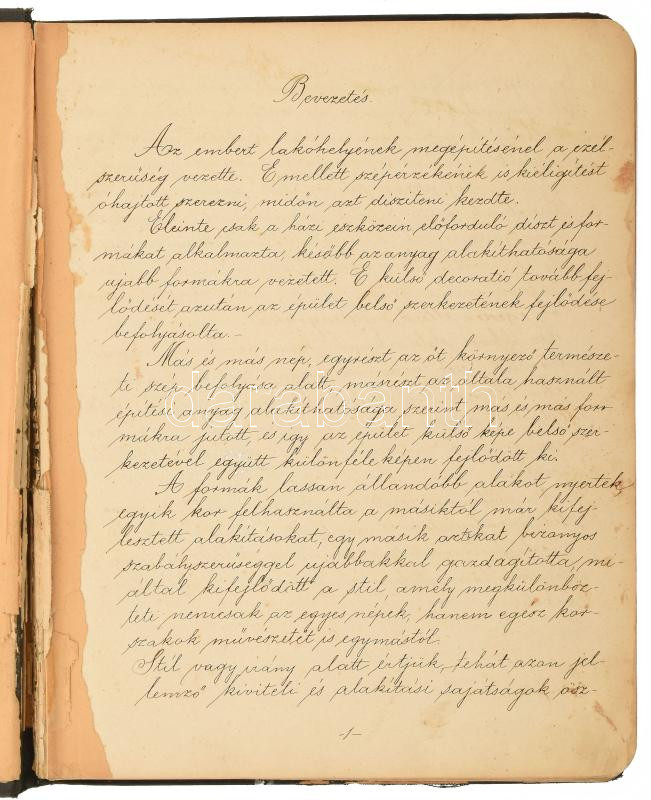 Bevezetés.
Az embert lakóhelyének megépítésénel a czél-
szerüség vezette. E mellett szépérzékének is kiéligítést
óhajtott szerezni, midőn azt disziteni kezdte.
Eleinte csak a házi eszközein előforduló díszt és for-
mákat alkalmazta, később az anyag alakíthatósága
ujabb formákra vezetett. E külső decoratió tovább fej-
lődését azután az épület belső szerkezetének fejlődése
befolyásolta.-
Más és más nép, egyrészt az őt környező természe-
ti szép befolyása alatt, másrészt az általa használt
épitési anyag alakíthatósága szerint más és más for-
mákra jutott, és igy az épület külső képe belső szer-
kezetével együtt különféleképen fejlődött ki.
A formák lassan állandóbb alakot nyertek,
egyik kor felhasználta a másiktól már kifej-
lesztett alakításokat, egy másik azokat bizonyos
szabályszerüséggel ujabbakkal gazdagította, mi-
által kifejlődött a stil, amely megkülönböz-
teti nemcsak az egyes népek, hanem egész kor-
szakok müvészetét is egymástól.
Stil vagy irány alatt értjük, tehát azon jel-
lemző kiviteli és alakítási sajátságok ösz-
-1-
darabanth